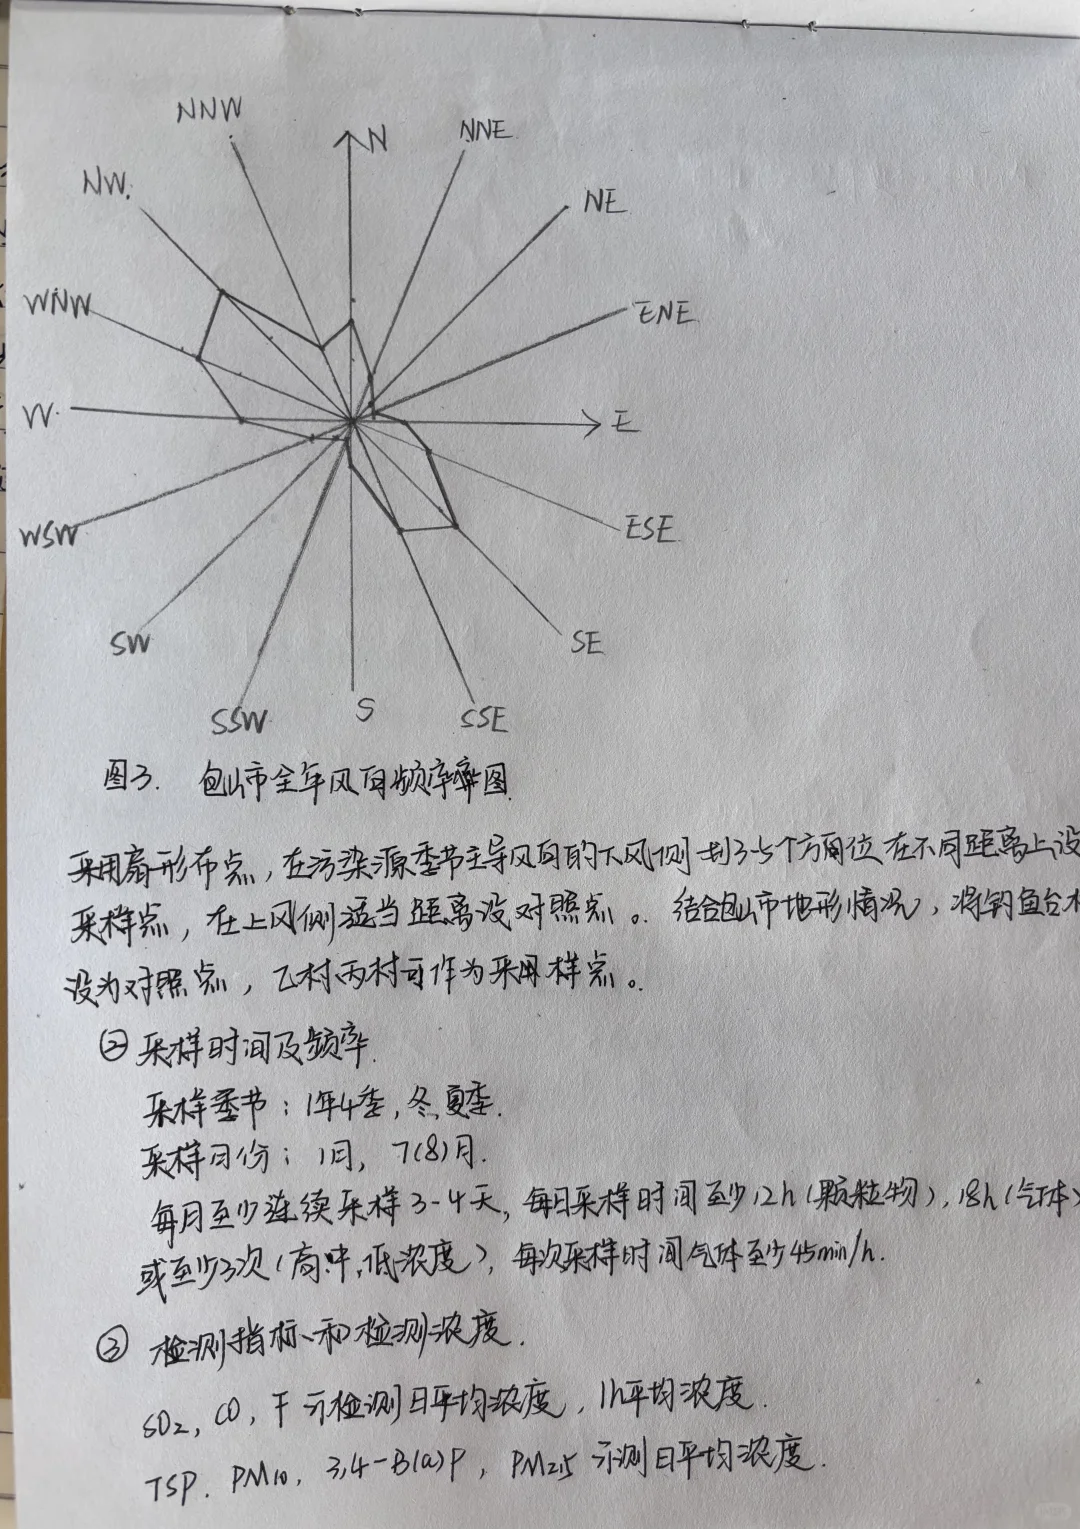 NNW
N
NNE
NW.
NE
WNW
ENE
W.
E
WSW
ESE
SW
SE
SSW
S
SSE
图3. 包山市全年风向频率图
采用扇形布点，在污染源季节主导风向的下风侧划3-5个方位在不同距离上设
采样点，在上风侧适当距离设对照点。结合包山市地形情况，将钓鱼台村
设为对照点，乙村丙村可作为采用样点。
② 采样时间及频率.
采样季节：1年4季,冬,夏季.
采样月份：1月，7(8)月.
每月至少连续采样3-4天，每日采样时间至少12h(颗粒物),18h(气体)
或至少3次(高.中.低浓度)，每次采样时间气体至少45min/h.
③ 检测指标和检测浓度.
SO2, CO, F 示检测日平均浓度，1h平均浓度.
TSP. PM10, 3,4-B(a)P, PM2.5 示测日平均浓度.